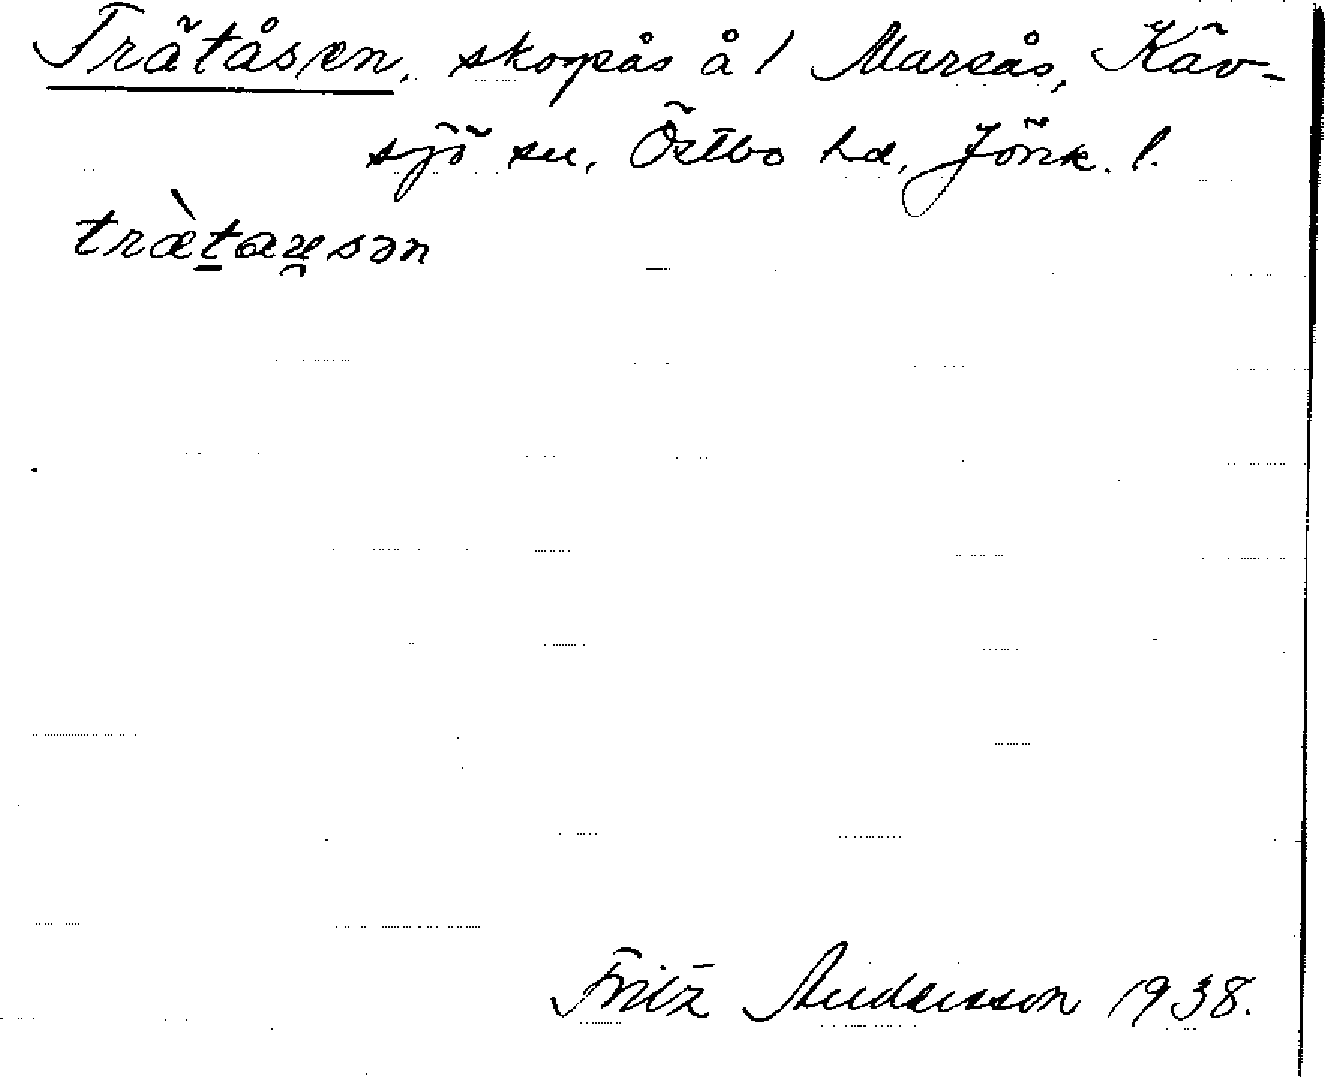 Trätåsen, skogsås å 1 Marsås, Käv-
sjö sn, Östbo hd, Jönk. l.
træ̀tau̯sən
Fritz Andersson 1938.